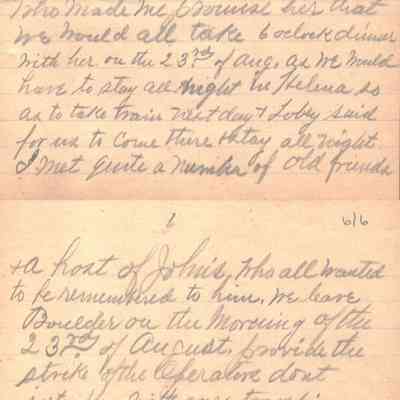 who made me promise her that
we would all take 6 oclock dinner
with her on the 23rd of Aug, as we would
have to stay all night in Helena so
as to take train next day & Toby said
for us to come there & stay all night.
I met quite a number of old friends
6/6
& a host of John's, who all wanted
to be remembered to him. We leave
Boulder on the morning of the
23rd of August, provide the
strike of the Operators dont